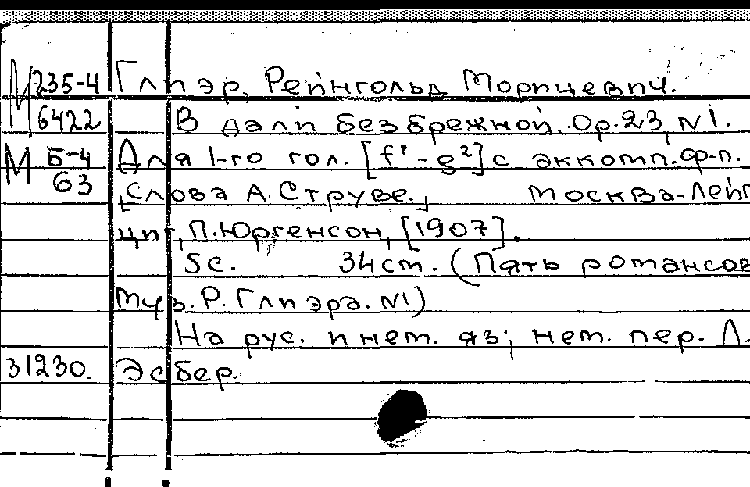 М 235-4 Глиэр, Рейнгольд Морицевич.
6422 В дали безбрежной. Op.23, N1.
М Б-4 Для 1-го гол. [f¹-g²] с аккомп. ф-п.
63 [Слова А. Струве.] Москва-Лейп
циг, П. Юргенсон, [1907].
5с. 34cm. (Пять романсов
муз. Р. Глиэра. N1)
На рус. и нем. яз; нем. пер. Л.
31230. Эсбер.